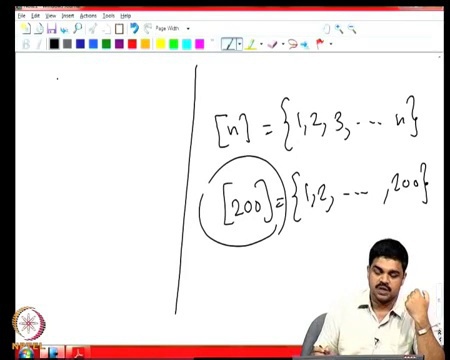 File Edit View Insert Actions Tools Help
Page Width
B
[n] = {1, 2, 3, ... n}
[200] = {1, 2, ... , 200}